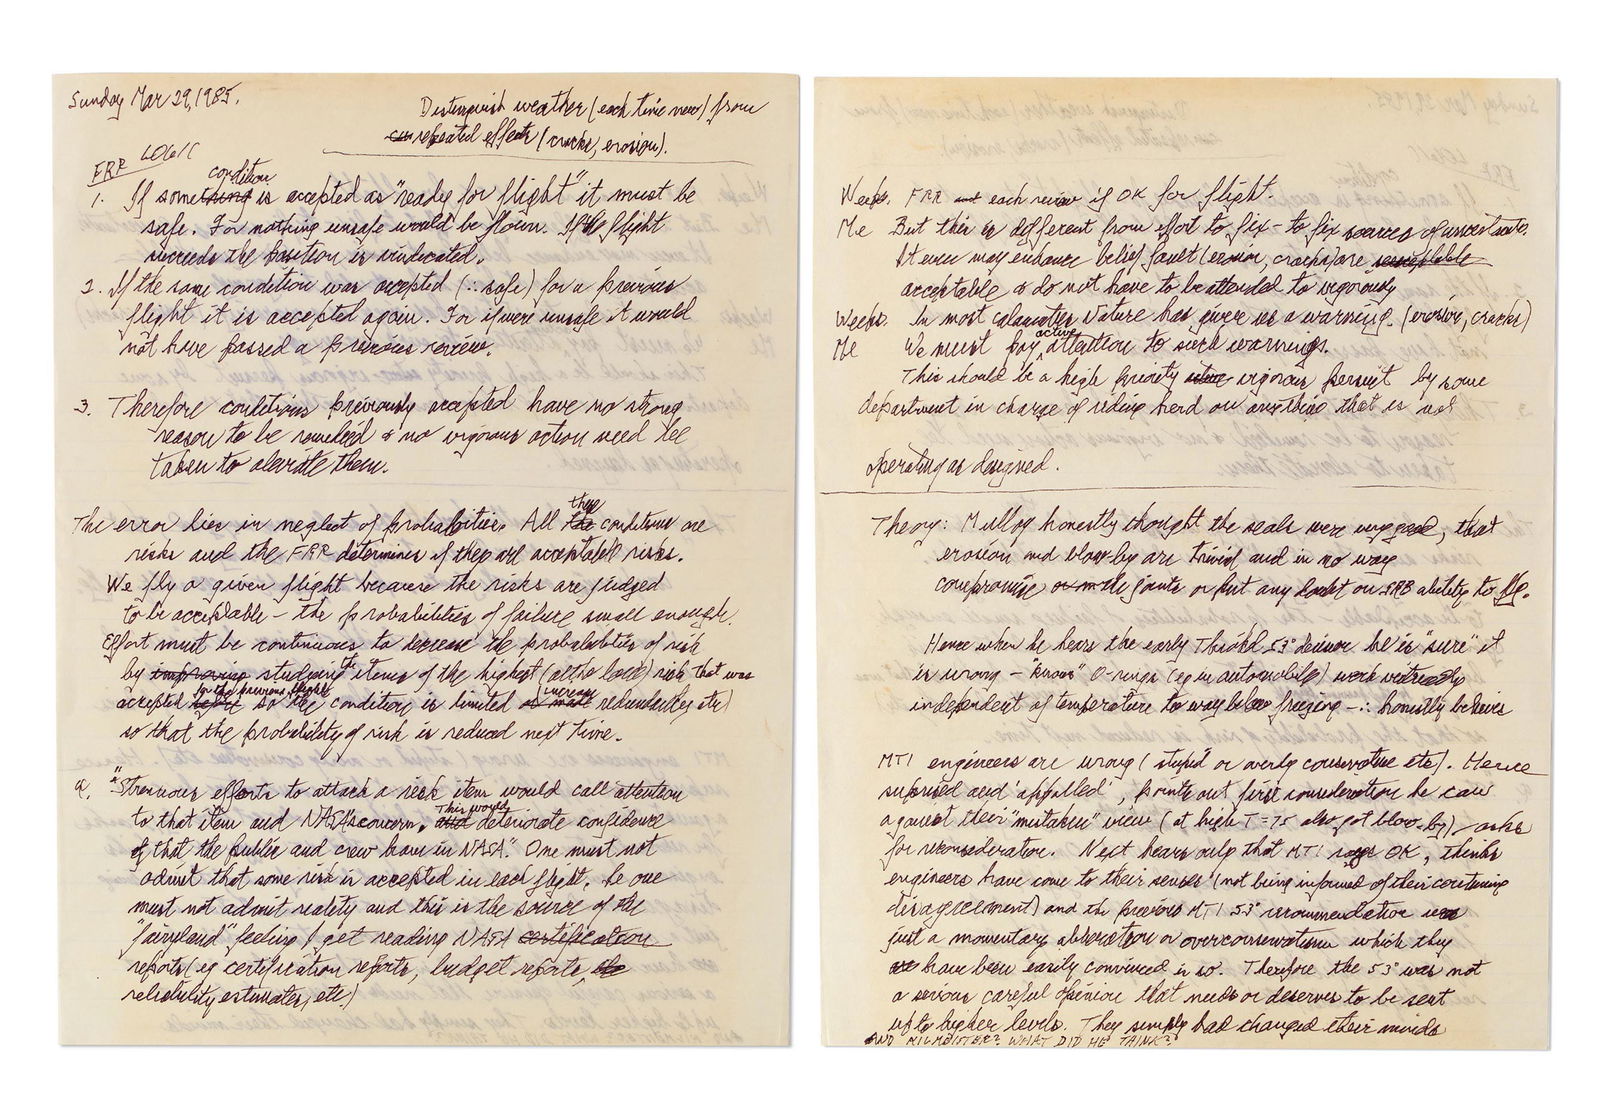 Sunday Mar 29, 1985.
Distinguish weather (each time new) from
repeated effects (cracks, erosion).
FRR LOGIC
condition
1. If something is accepted as "ready for flight" it must be
safe. For nothing unsafe would be flown. If the flight
succeeds the position is vindicated.
2. If the same condition was accepted (∴ safe) for a previous
flight it is accepted again. For if were unsafe it would
not have passed a previous review.
3. Therefore conditions previously accepted have no strong
reason to be & no vigorous action need be
taken to aleviate them.
The error lies in neglect of probabilities. All the these conditions are
risks and the FRR determines if they are acceptable risks.
We fly a given flight because the risks are judged
to be acceptable – the probabilities of failure small enough.
Effort must be continuous to decrease the probabilities of risk
by improving studying the items of the highest (altho low) risk that was
accepted for the previous flight so the condition is limited or made (increase redundancy etc)
so that the probability of risk is reduced next time.
a. "Strenuous efforts to attack a risk item would call attention
to that item and NASA's concern. This would deteriorate confidence
that the public and crew have in NASA." One must not
admit that some risk is accepted in each flight. Ie one
must not admit reality and this is the source of the
"fairyland" feeling I get reading NASA certification
reports (eg certification reports, budget reports, the
reliability estimates, etc)
Weeks. FRR each review if OK for flight.
Me But this is different from effort to fix – to fix sources of uncertainty.
It even may enhance belief fault (erosion, cracks) are acceptable
acceptable & do not have to be attended to vigorously
Weeks. In most calamities Nature has given us a warning. (erosion, cracks)
Me We must pay active attention to such warnings.
This should be a high priority vigorous persuit by some
department in charge of riding herd on anything that is not
operating as designed.
Theory: Mulloy honestly thought the seals were very good, that
erosion and blow-by are trivial and in no way
compromise the joints or put any doubt on SRB ability to fly.
Hence when he hears the early Thiokol 53° decision he is "sure" it
is wrong – "knows" O-rings (eg in automobile) work virtually
independent of temperature to way below freezing – ∴ honestly believes
MTI engineers are wrong (stupid or overly conservative etc). Hence
suprised and 'appalled', points out first consideration he can
against their "mistaken" view (at high T=75 also got blow-by) – asks
for reconsideration. Next hears only that MTI says OK, thinks
engineers have come to their senses (not being informed of their continuing
disagreement) and the previous MTI 53° recommendation was
just a momentary abberation or overconservatism which they
have been easily convinced is so. Therefore the 53° was not
a serious careful opinion that needs or deserves to be sent
up to higher levels. They simply had changed their minds
AND KILMINSTER? WHAT DID HE THINK?